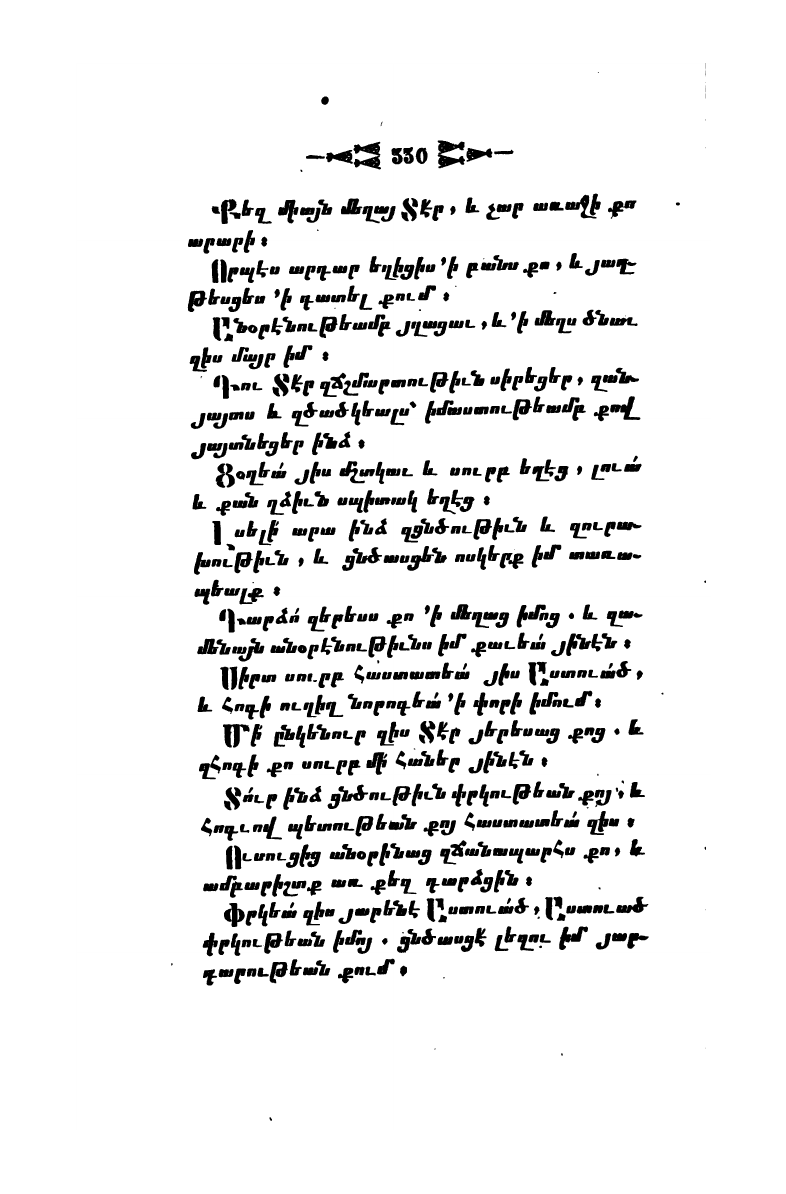 330
Քեզ միայն մեղայ Տէր, և չար առաջի քո
արարի։
Որպէս արդար եղիցիս ՚ի բանս քո, և յաղ֊
թեսցես ՚ի դատել քում։
Անօրէնութեամբ յղացաւ, և ՚ի մեղս ծնաւ
զիս մայր իմ։
Դու Տէր զճշմարտութիւն սիրեցեր, զան֊
յայտս և զծածկեալս՝ իմաստութեամբ քով
յայտնեցեր ինձ։
Ցօղեա՛ յիս մշտկաւ և սուրբ եղէց, լուա՛
և քան զձիւն սպիտակ եղէց։
Լսելի՛ արա ինձ զցնծութիւն և զուրա֊
խութիւն, և ցնծասցեն ոսկերք իմ տառա֊
պեալք։
Դարձո՛ զերեսս քո ՚ի մեղաց իմոց. և զա֊
մենայն անօրէնութիւնս իմ քաւեա՛ յինէն։
Սիրտ սուրբ հաստատեա՛ յիս Աստուա՛ծ,
և հոգի ուղիղ նորոգեա՛ ՚ի փորի իմում։
Մի՛ ընկենուր զիս Տէր յերեսաց քոց. և
զհոգի քո սուրբ մի՛ հաներ յինէն։
Տո՛ւր ինձ ցնծութիւն փրկութեան քոյ, և
հոգւով պետութեան քոյ հաստատեա՛ զիս։
Ուսուցից անօրինաց զճանապարհս քո, և
ամբարիշտք առ քեզ դարձցին։
Փրկեա՛ զիս յարենէ Աստուա՛ծ, Աստուած
փրկութեան իմոյ. ցնծասցէ լեզու իմ յար֊
դարութեան քում։